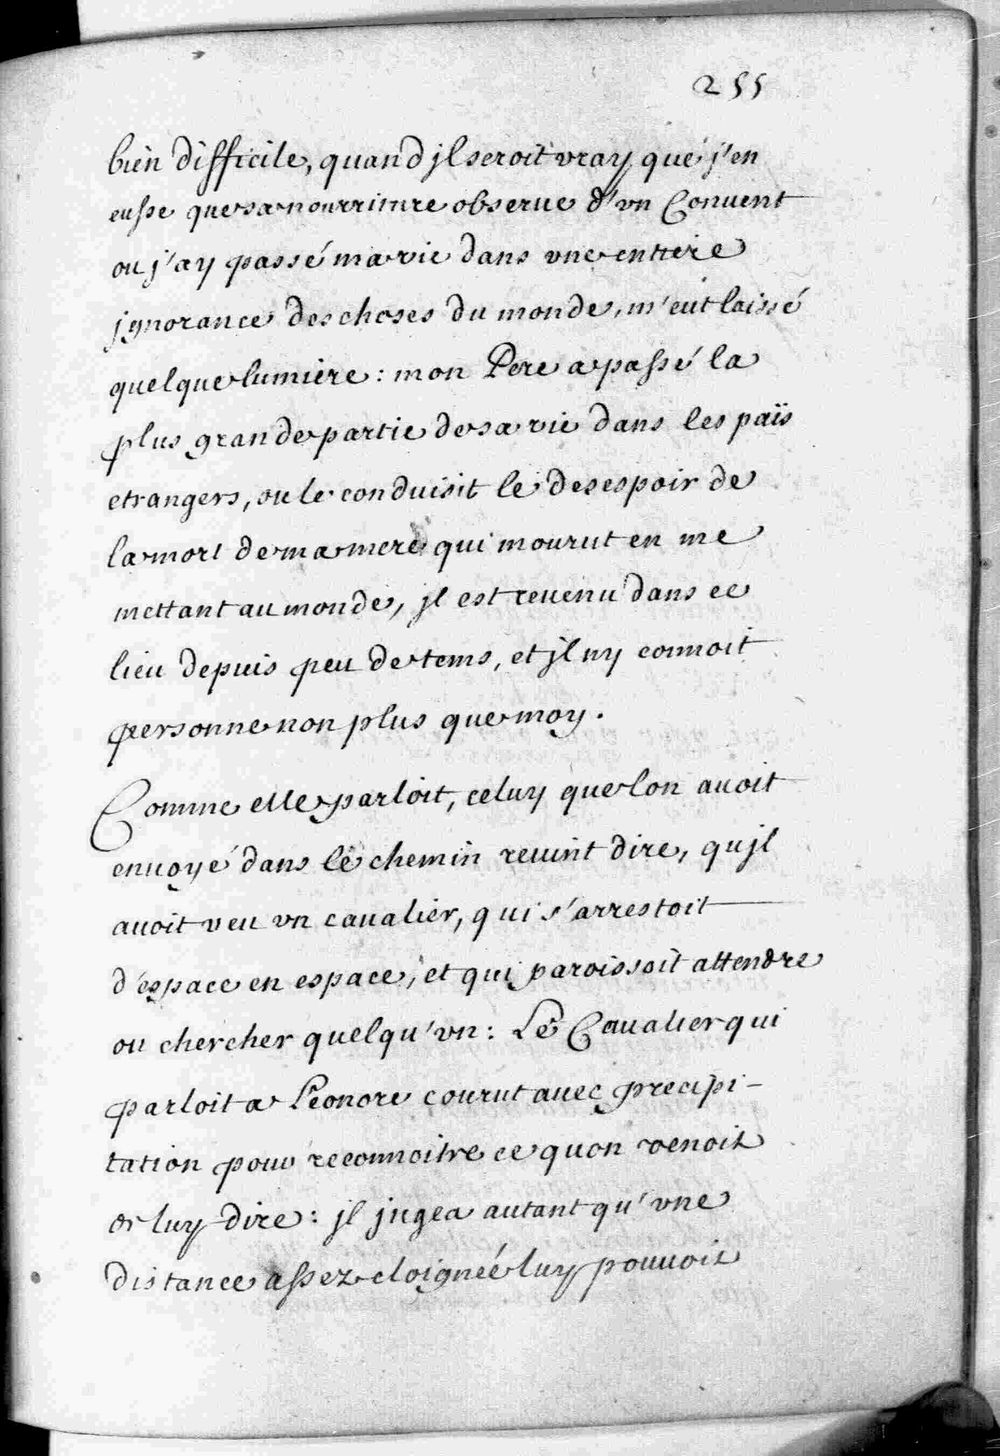 255
bien difficile, quand jl seroit vray que j'en
eusse que sa nourriture obserue d'vn Conuent
ou j'ay passé ma vie dans vne entiere
jgnorance des choses du monde, m'eut laissé
quelque lumiere : mon Pere a passé la
plus grande partie de sa vie dans les païs
etrangers, ou le conduisit le desespoir de
la mort de ma mere qui mourut en me
mettant au monde, jl est reuenu dans ce
lieu depuis peu de tems, et jl ny connoit
personne non plus que moy.
Comme elle parloit, celuy que lon auoit
enuoyé dans le chemin reuint dire, qu jl
auoit veu vn caualier, qui s'arrestoit
d'espace en espace, et qui paroissoit attendre
ou chercher quelqu'vn : Le Caualier qui
parloit a Leonore courut auec precipi-
tation pour reconnoitre ce quon venoit
de luy dire : jl jugea autant qu'vne
distance assez eloignée luy pouuoit